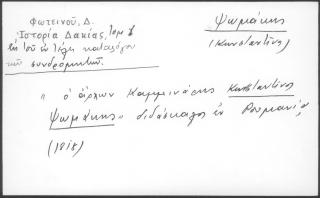 Φωτεινοῦ, Δ.
Ἱστορία Δακίας, Τομ
τῆς ἐν τέλει καταλόγου
τῶν συνδρομητῶν.
Ψωμάκης
(Κωνσταντῖνος)
" ὁ ἄρχων Καμμινάρης Κωνσταντῖνος
Ψωμάκης" διδάσκαλος ἐν Ρουμανίᾳ
(1818)